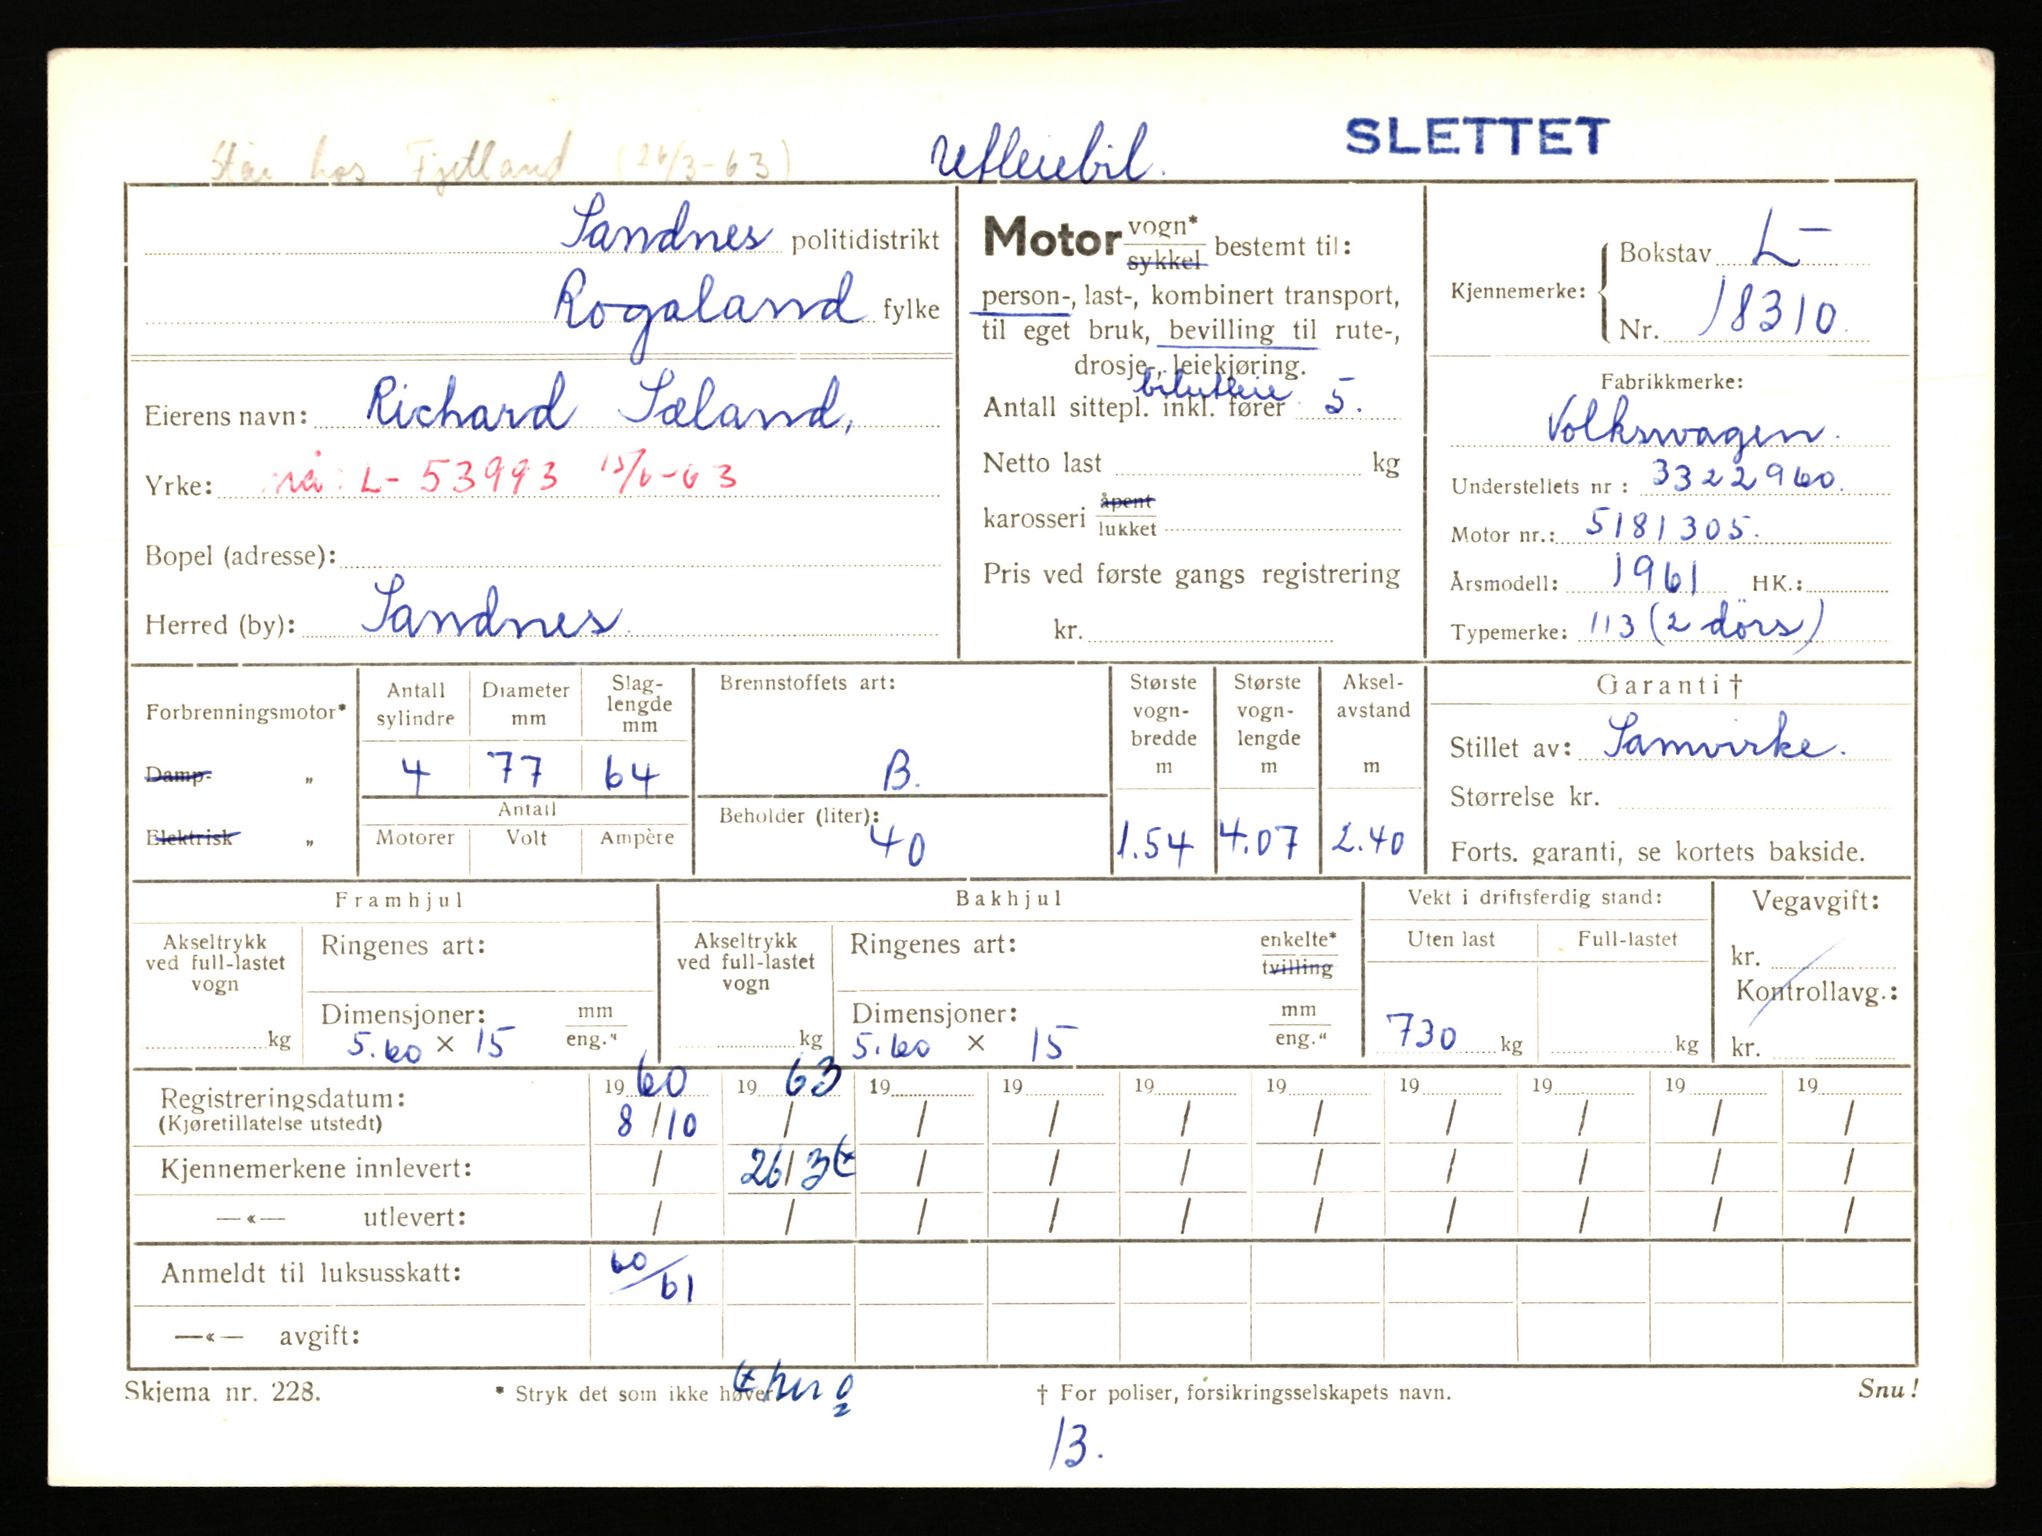 Står hos Fjetland (26/3-63) Utleiebil. SLETTET
Sandnes politidistrikt
Rogaland fylke
Eierens navn: Richard Sæland,
Yrke: nå: L-53993 15/6-63
Bopel (adresse):
Herred (by): Sandnes.
Motor vogn* sykkel bestemt til:
person-, last-, kombinert transport,
til eget bruk, bevilling til rute-,
drosje-, leiekjøring.
bilutleie
Antall sittepl. inkl. fører 5.
Netto last kg
karosseri åpent lukket
Pris ved første gangs registrering
kr.
Kjennemerke: Bokstav L-
Nr. 18310.
Fabrikkmerke:
Volkswagen.
Understellets nr : 3322960.
Motor nr.: 5181305.
Årsmodell: 1961 HK.:
Typemerke: 113 (2 dörs)
Forbrenningsmotor*
Damp- „
Elektrisk „
Antall sylindre Diameter mm Slag-lengde mm
4 77 64
Antall
Motorer Volt Ampère
Brennstoffets art:
B.
Beholder (liter):
40
Største vogn-bredde m Største vogn-lengde m Aksel-avstand m
1.54 4.07 2.40
Garanti †
Stillet av: Samvirke.
Størrelse kr.
Forts. garanti, se kortets bakside.
Framhjul
Akseltrykk ved full-lastet vogn
kg
Ringenes art:
Dimensjoner: mm eng."
5.60 × 15
Bakhjul
Akseltrykk ved full-lastet vogn
kg
Ringenes art: enkelte* tvilling
Dimensjoner: mm eng."
5.60 × 15
Vekt i driftsferdig stand:
Uten last Full-lastet
730 kg kg
Vegavgift:
kr.
Kontrollavg.:
kr.
Registreringsdatum: 19 60 19 63 19 19 19 19 19 19 19 19
(Kjøretillatelse utstedt) 8/10 / / / / / / / / /
Kjennemerkene innlevert: / 26/3 / / / / / / / /
—«— utlevert: / / / / / / / / / /
Anmeldt til luksusskatt: 60/61
—«— avgift:
Skjema nr. 228. * Stryk det som ikke høver † For poliser, forsikringsselskapets navn. Snu!
13.